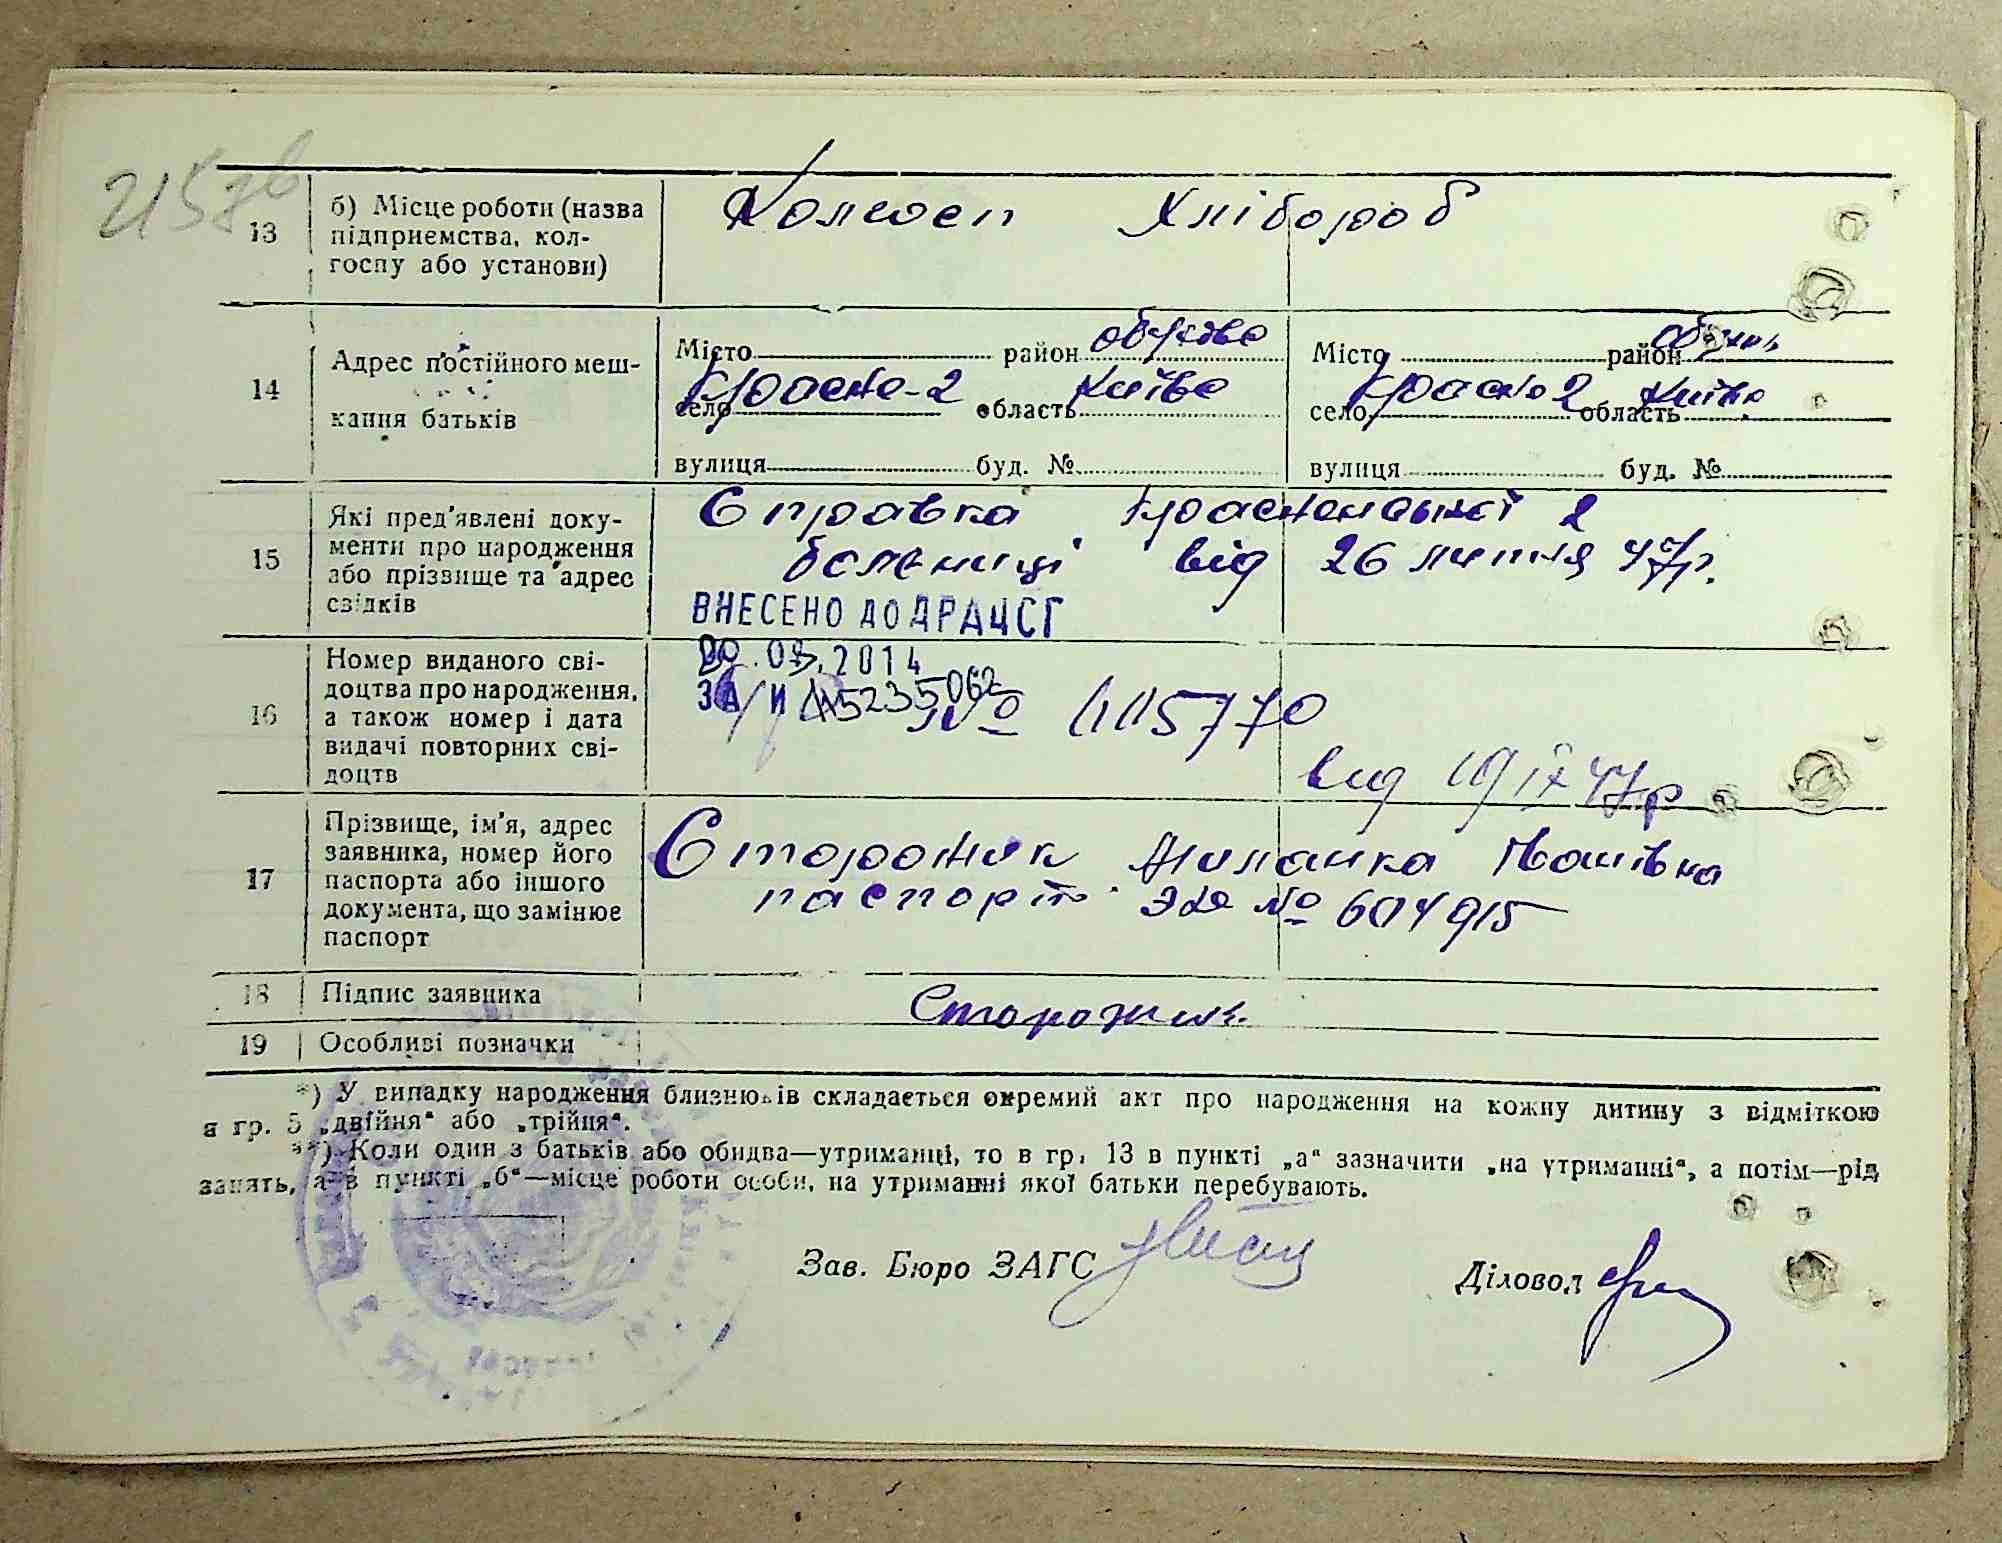 215зв
13
б) Місце роботи (назва
підприємства, кол-
госпу або установи)
Колгосп Хлібороб
14
Адрес постійного меш-
кання батьків
Місто район обухово
село Красне-2 область Київо
вулиця буд. №
Місто район обухов
село Красно 2 область Київо
вулиця буд. №
15
Які пред'явлені доку-
менти про народження
або прізвище та адрес
свідків
Справка Красненської 2
больниці від 26 липня 47р.
ВНЕСЕНО ДО ДРАЦСГ
2014
16
Номер виданого сві-
доцтва про народження,
а також номер і дата
видачі повторних сві-
доцтв
№ 115770
від 19 IX 47р
17
Прізвище, ім'я, адрес
заявника, номер його
паспорта або іншого
документа, що замінює
паспорт
Сторожик Миланка
паспорт № 604915
18
Підпис заявника
Сторожик
19
Особливі позначки
*) У випадку народження близнюків складається окремий акт про народження на кожну дитину з відміткою
в гр. 5 „двійня“ або „трійня“.
**) Коли один з батьків або обидва—утриманці, то в гр. 13 в пункті „а“ зазначити „на утриманні“, а потім—рід
занять, а в пункті „б“—місце роботи особи, на утриманні якої батьки перебувають.
Зав. Бюро ЗАГС
Діловод